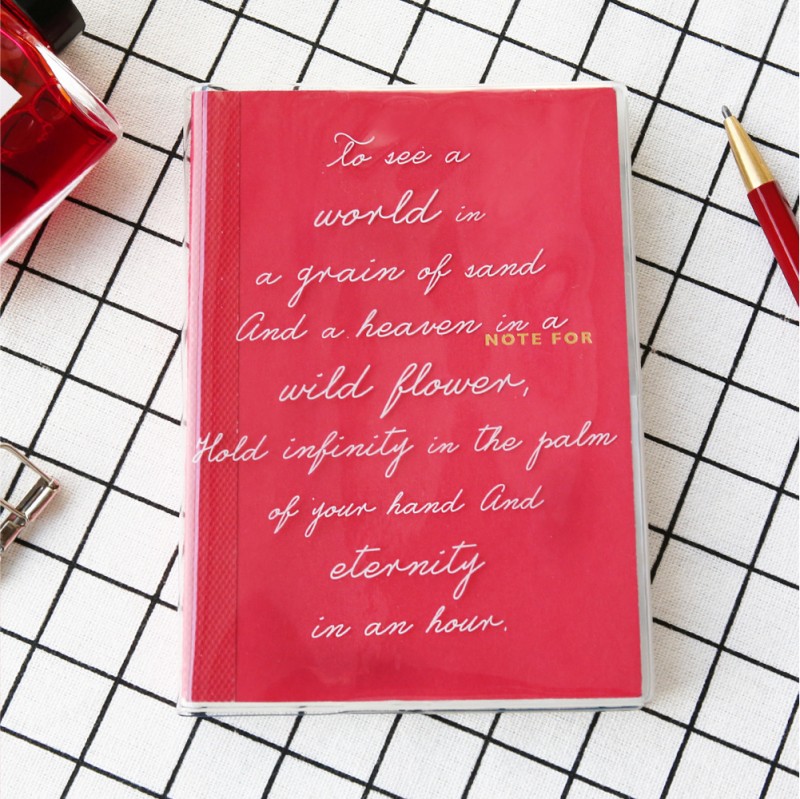 To see a
world in
a grain of sand
And a heaven in a
NOTE FOR
wild flower,
Hold infinity in the palm
of your hand And
eternity
in an hour.